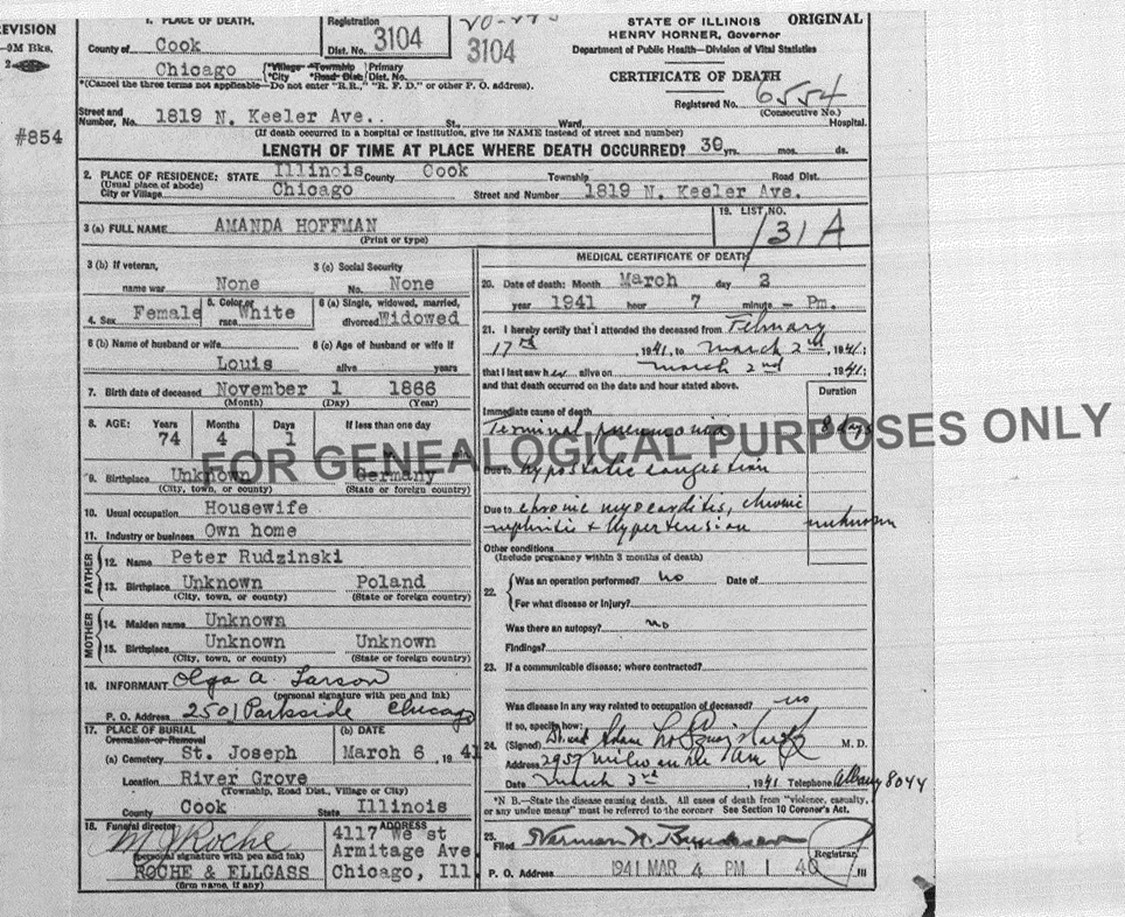 EVISION
-0M Bks.
2
#854
1. PLACE OF DEATH.
County of Cook
Registration Dist. No. 3104
3104
STATE OF ILLINOIS ORIGINAL
HENRY HORNER, Governor
Department of Public Health—Division of Vital Statistics
Chicago {*Village *Township *City *Road Dist.} Primary Dist. No.
*(Cancel the three terms not applicable—Do not enter "R.R.," "R. F. D." or other P. O. address).
CERTIFICATE OF DEATH
Registered No. 6554
(Consecutive No.)
Street and Number, No. 1819 N. Keeler Ave.. St., Ward, Hospital.
(If death occurred in a hospital or institution, give its NAME instead of street and number)
LENGTH OF TIME AT PLACE WHERE DEATH OCCURRED? 30 yrs. mos. ds.
2. PLACE OF RESIDENCE: STATE Illinois County Cook Township Road Dist.
(Usual place of abode)
City or Village Chicago Street and Number 1819 N. Keeler Ave.
3 (a) FULL NAME AMANDA HOFFMAN
(Print or type)
19. LIST NO.
131A
3 (b) If veteran, name war None
3 (c) Social Security No. None
4. Sex Female
5. Color or race White
6 (a) Single, widowed, married, divorced Widowed
6 (b) Name of husband or wife Louis
6 (c) Age of husband or wife if alive years
7. Birth date of deceased November 1 1866
(Month) (Day) (Year)
8. AGE: Years Months Days If less than one day
74 4 1
9. Birthplace Unknown Germany
(City, town, or county) (State or foreign country)
10. Usual occupation Housewife
11. Industry or business Own home
FATHER
12. Name Peter Rudzinski
13. Birthplace Unknown Poland
(City, town, or county) (State or foreign country)
MOTHER
14. Maiden name Unknown
15. Birthplace Unknown Unknown
(City, town, or county) (State or foreign country)
16. INFORMANT Olga A. Larson
(personal signature with pen and ink)
P. O. Address 2501 Parkside Chicago
17. PLACE OF BURIAL Cremation or Removal
(b) DATE
(a) Cemetery St. Joseph March 6, 1941
Location River Grove
(Township, Road Dist., Village or City)
County Cook State Illinois
18. Funeral director M J Roche
(personal signature with pen and ink)
ROCHE & ELLGASS
(firm name, if any)
ADDRESS
4117 West
Armitage Ave
Chicago, Ill
MEDICAL CERTIFICATE OF DEATH
20. Date of death: Month March day 2
year 1941 hour 7 minute — Pm.
21. I hereby certify that I attended the deceased from February
17th, 1941, to March 2nd, 1941;
that I last saw her alive on March 2nd, 1941;
and that death occurred on the date and hour stated above.
Duration
Immediate cause of death
Terminal pneumonia 8 days
Due to hypostatic congestion
Due to chronic myocarditis, chronic
nephritis & Hypertension unknown
Other conditions
(Include pregnancy within 3 months of death)
22. {Was an operation performed? no Date of
For what disease or injury?
Was there an autopsy? no
Findings?
23. If a communicable disease; where contracted?
Was disease in any way related to occupation of deceased? no
If so, specify how:
24. (Signed) M. D.
Address 2957 Milwaukee Ave
Date March 3rd, 1941 Telephone Albany 8044
*N. B.—State the disease causing death. All cases of death from "violence, casualty, or any undue means" must be referred to the coroner. See Section 10 Coroner's Act.
25. Filed Herman N. Bundesen
Registrar
P. O. Address 1941 MAR 4 PM 1 40 Ill
FOR GENEALOGICAL PURPOSES ONLY